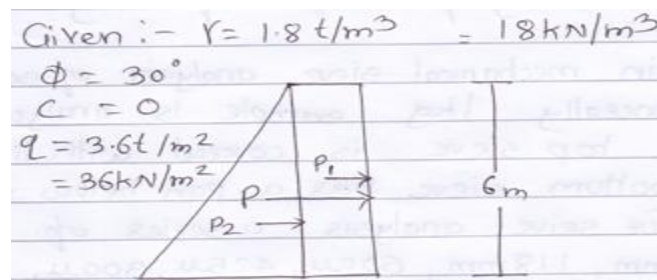 Given :- γ = 1.8 t/m³ = 18 kN/m³
ϕ = 30°
C = 0
q = 3.6t/m²
= 36kN/m²
P₁
P
P₂
6m